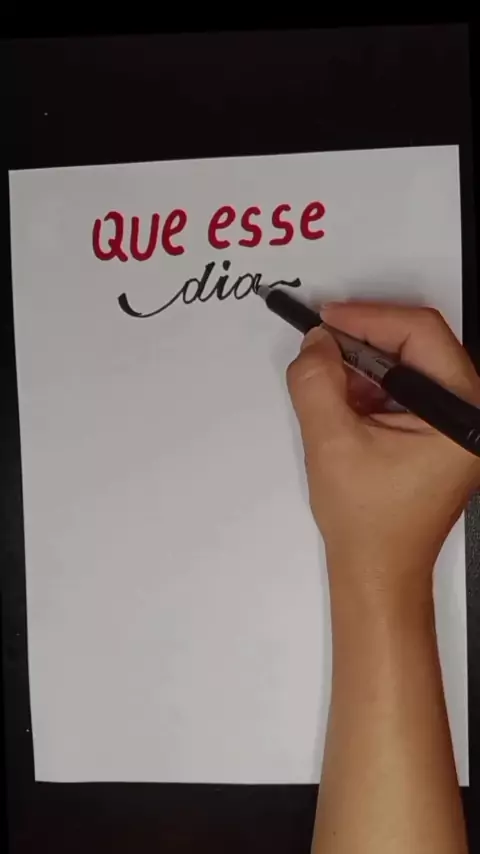 Que esse
dia